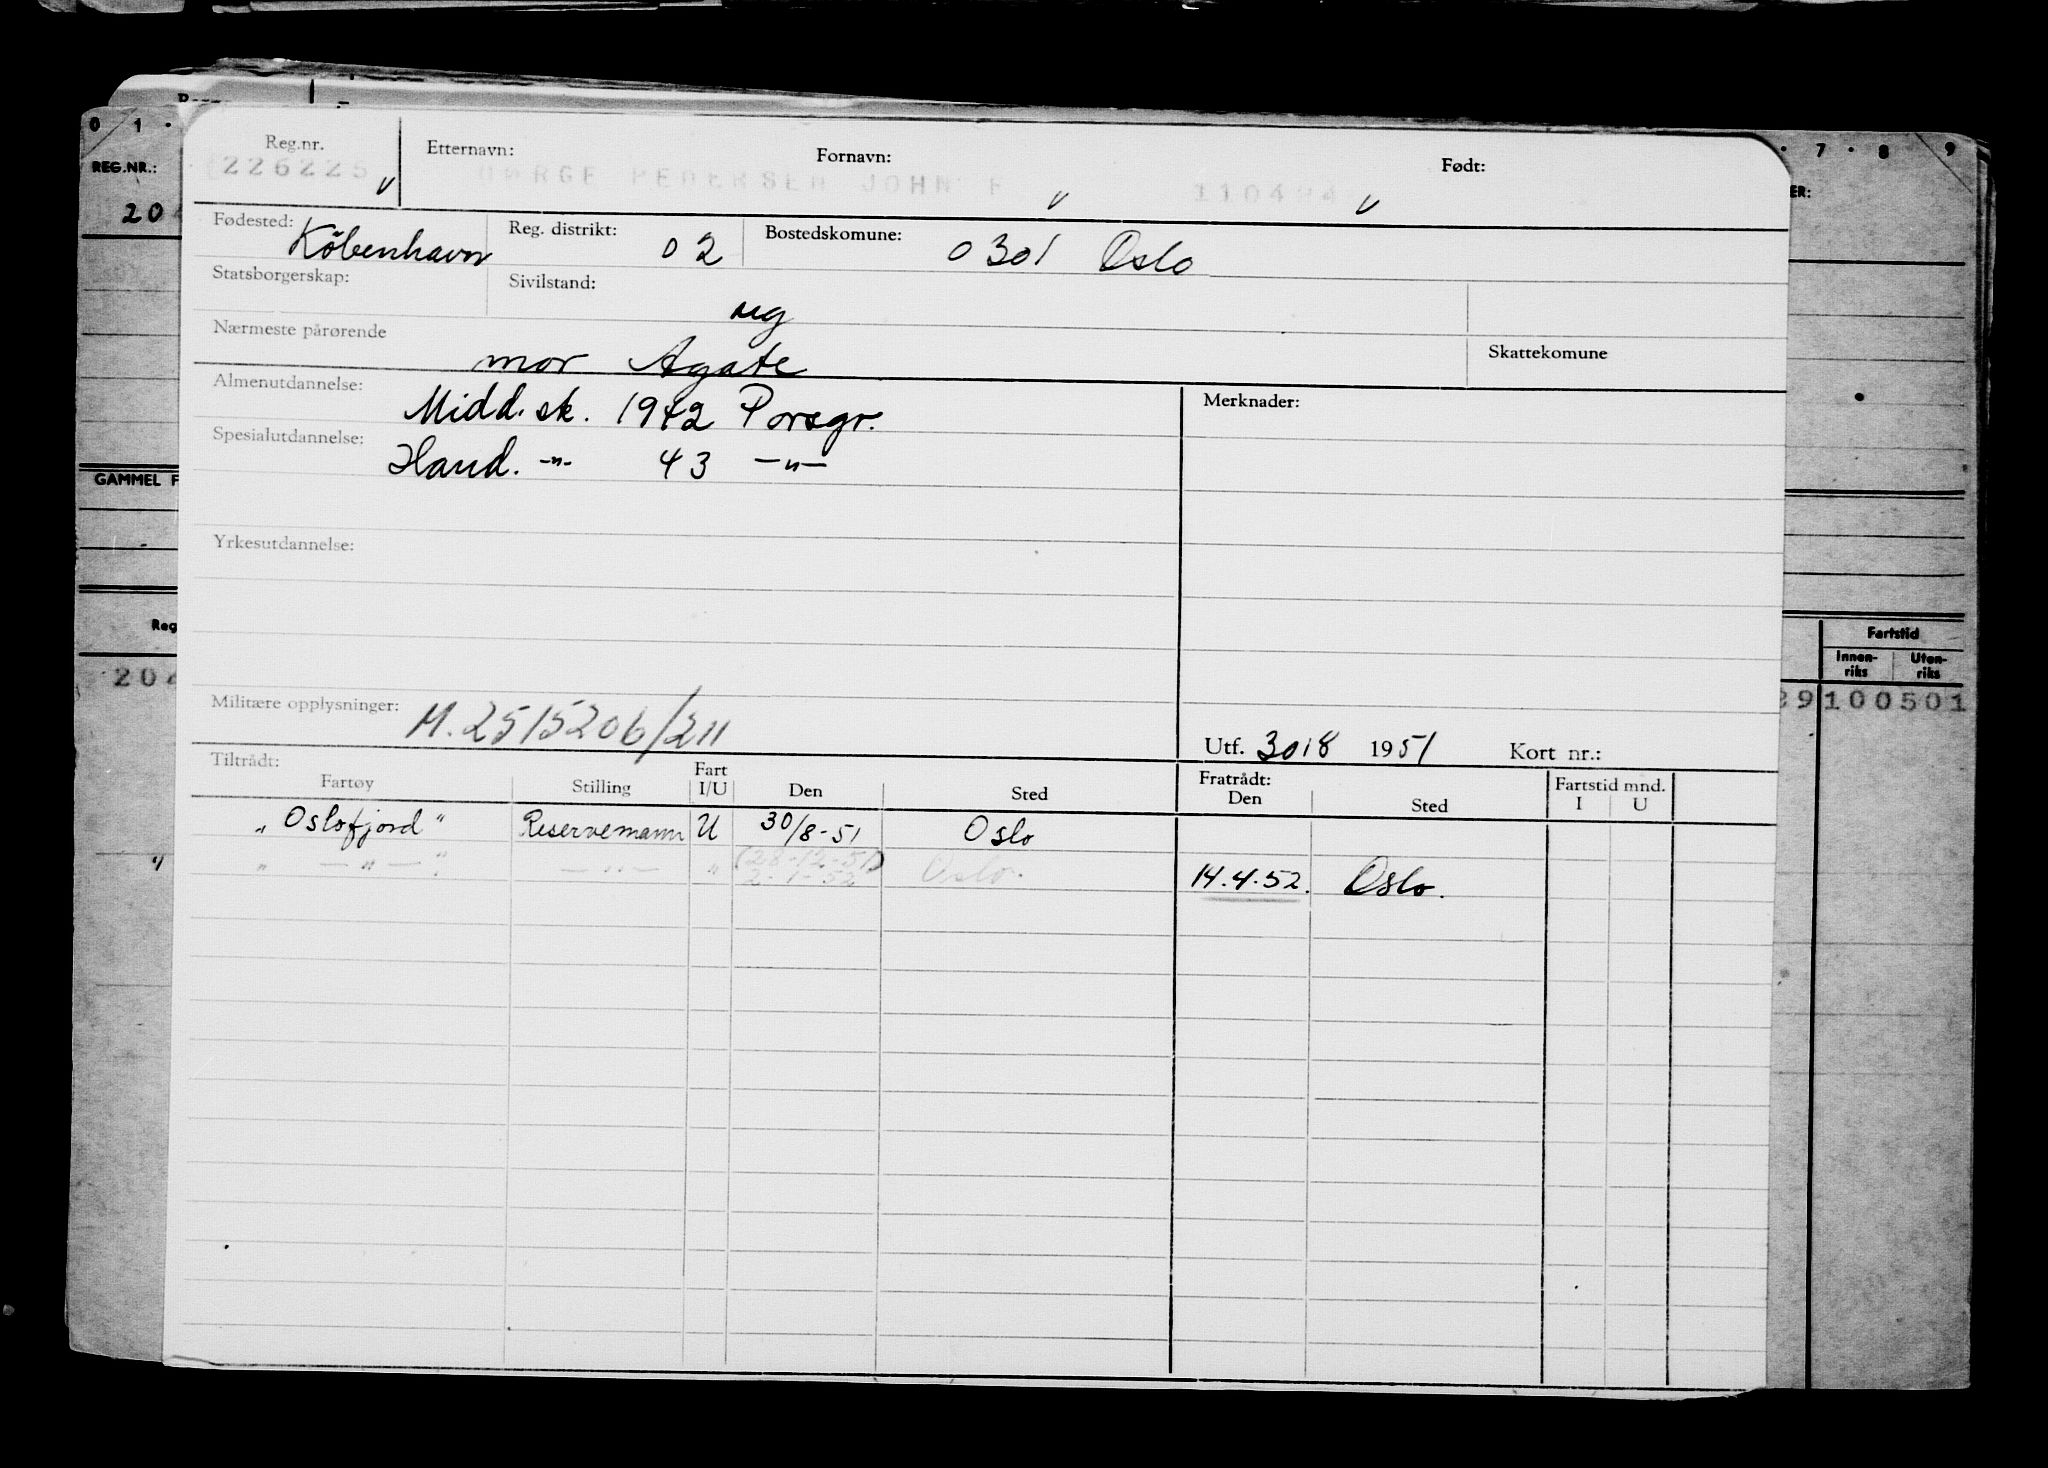 0 1 · 7 · 8 9
REG.NR.:
20
GAMMEL F
Reg
204
Fartstid
Innen-riks Uten-riks
29 100501
Reg.nr. Etternavn: Fornavn: Født:
226225 PEDERSEN JOHN
Fødested: København Reg. distrikt: 02 Bostedskomune: 0301 Oslo
Statsborgerskap: Sivilstand: ug
Nærmeste pårørende mor Agate Skattekomune
Almenutdannelse: Midd.sk. 1942 Porsgr. Merknader:
Spesialutdannelse: Hand. -"- 43 -"-
Yrkesutdannelse:
Militære opplysninger: M.2515206/211
Utf. 30/8 1951 Kort nr.:
Tiltrådt: Fratrådt: Fartstid mnd.
Fartøy Stilling Fart I/U Den Sted Den Sted I U
"Oslofjord" Reservemann U 30/8-51 Oslo
" -"- " -"- " (28-12-51) 2-1-52 Oslo. 14.4.52. Oslo.